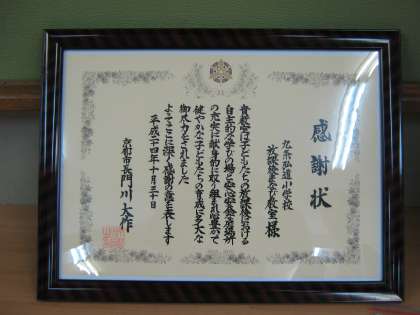 感謝状
九条弘道小学校
放課後まなび教室様
貴教室は子どもたちの放課後における
自主的な学びの場と安心安全な居場所
の充実に献身的に取り組まれ心豊かで
健やかな子どもたちの育成に多大な
御尽力をされました
よってここに深く感謝の意を表します
平成二十四年十月三十日
京都市長 門川大作